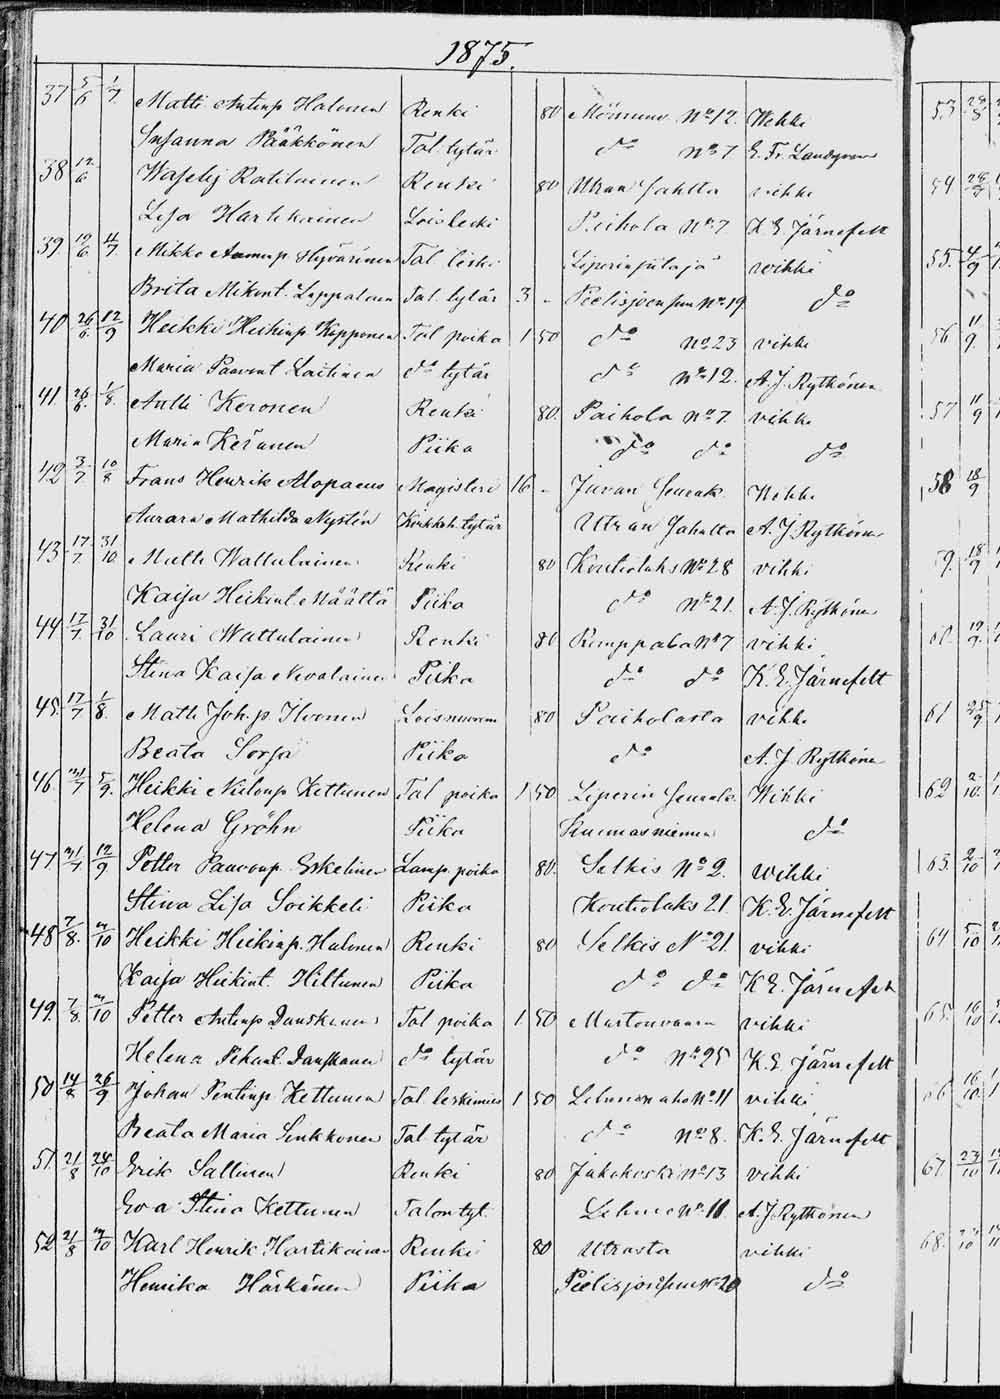 1875.
37 5/6 1/7 Matti Antinp Halonen Renki 80 Mönnine No 12. Wihki
Susanna Pääkkönen Tal. tytär do No 7 E. Fr. Landgren
38 12/6 Wasely Ratilainen Renki 80 Utran Sahtta vihki
Lisa Hartikainen Loisleski Paihola No 7 K. E. Järnefelt
39. 19/6 11/7 Mikko Hyvärinen Tal leski vihki
Brita Mikint. Lappalainen Tal. tytär 3 - Pielisjoensuu No 19. do
40 26/6. 12/9 Heikki Heikinp Kopponen Tal poika 1 50 do No 23 vihki
Maria Paavint Laitinen do tytär do No 12. A. J. Rytkönen
41. 26/6. 1/8. Antti Keronen Renki 80. Paihola No 7. vihki
Maria Keränen Piika do do do
42 3/7 10/8 Frans Henrik Alopaeus Magisteri 16 - Juvan Seurak. Wihki
Aurora Mathilda Nystén tytär Utran Sahalta A. J. Rytkönen
43 17/7. 31/10 Matti Wattulainen Renki 80 Kontiolaks No 28 vihki
Kaisa Heikint. Määttä Piika do No 21. A. J. Rytkönen
44 17/7 31/10 Lauri Wattulainen Renki 80 Romppala No 7 vihki
Stina Kaisa Nevalainen Piika do do K. E. Järnefelt
45. 17/7 1/8. Matti Joh. p. Ikonen Loismies 80 Paiholasta vihki
Beata Sorsa Piika do A. J. Rytkönen
46 31/7 5/9. Heikki Niilonp Kettunen Tal poika 1 50 Liperin Seurak. Wihki
Helena Gröhn Piika do
47. 31/7 12/9 Petter Paavonp. Eskelinen Lamp. poika 80. Selkis No 2. wihki
Stina Lisa Soikkeli Piika Kontiolaks 21. K. E. Järnefelt
48 7/8. /10 Heikki Heikinp. Halonen Renki 80 Selkis No 21. vihki
Kaisa Heikint. Hiltunen Piika do do K. E. Järnefelt
49. 7/8. /10 Petter Antinp Danskanen Tal poika 1 50 Martonvaara vihki
Helena Pekant. Danskanen do tytär do No 25 K. E. Järnefelt
50 14/8 26/9 Johan Penttinp Kettunen Tal. leskimies 1 50 No 11 vihki
Beata Maria Sinkkonen Tal tytär do No 8. K. E. Järnefelt
51. 21/8 24/10 Erik Sallinen Renki 80 Jakokoski No 13 vihki
Eva Stina Kettunen Talon tyt. No 11. A. J. Rytkönen
52 21/8 /10 Karl Henrik Hartikainen Renki 80 Utrasta vihki
Henrika Härkönen Piika Pielisjoensuu No 20 do
53
54
55. 4/9
56 11/9.
57 11/9
58 18/9
59. 18/9
60. 19/9.
61 25/9
62 2/10.
63. 2/10
64 5/10
65. 16/10
66 16/10.
67 23/10
68.